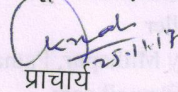 25.11.17
प्राचार्य